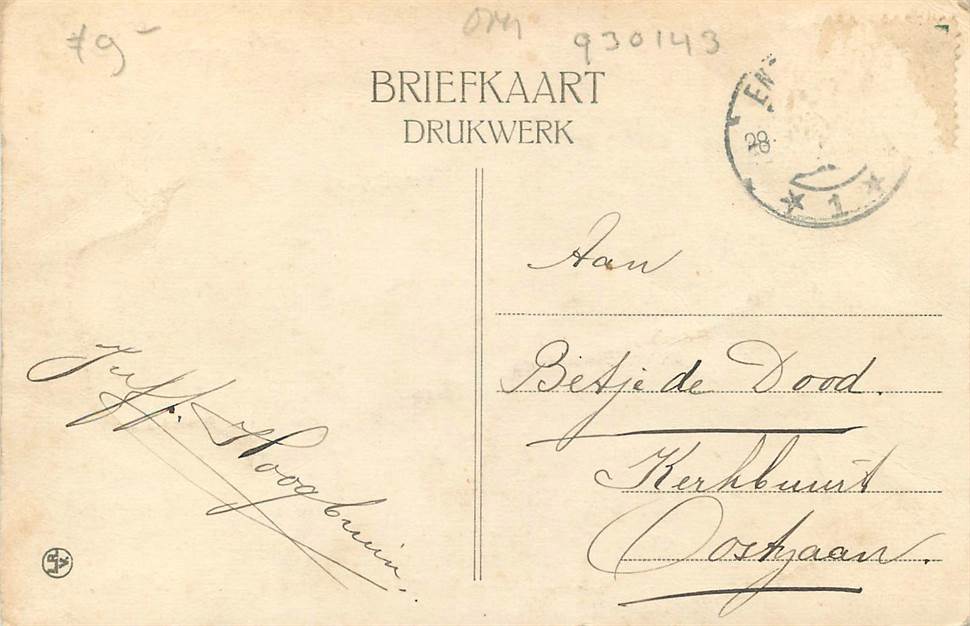 79-
930143
BRIEFKAART
DRUKWERK
EN
28
1
Aan
Betje de Dood.
Kerkbuurt
Oostzaan.
Juff. Hoogbruin.
L.R.
V.